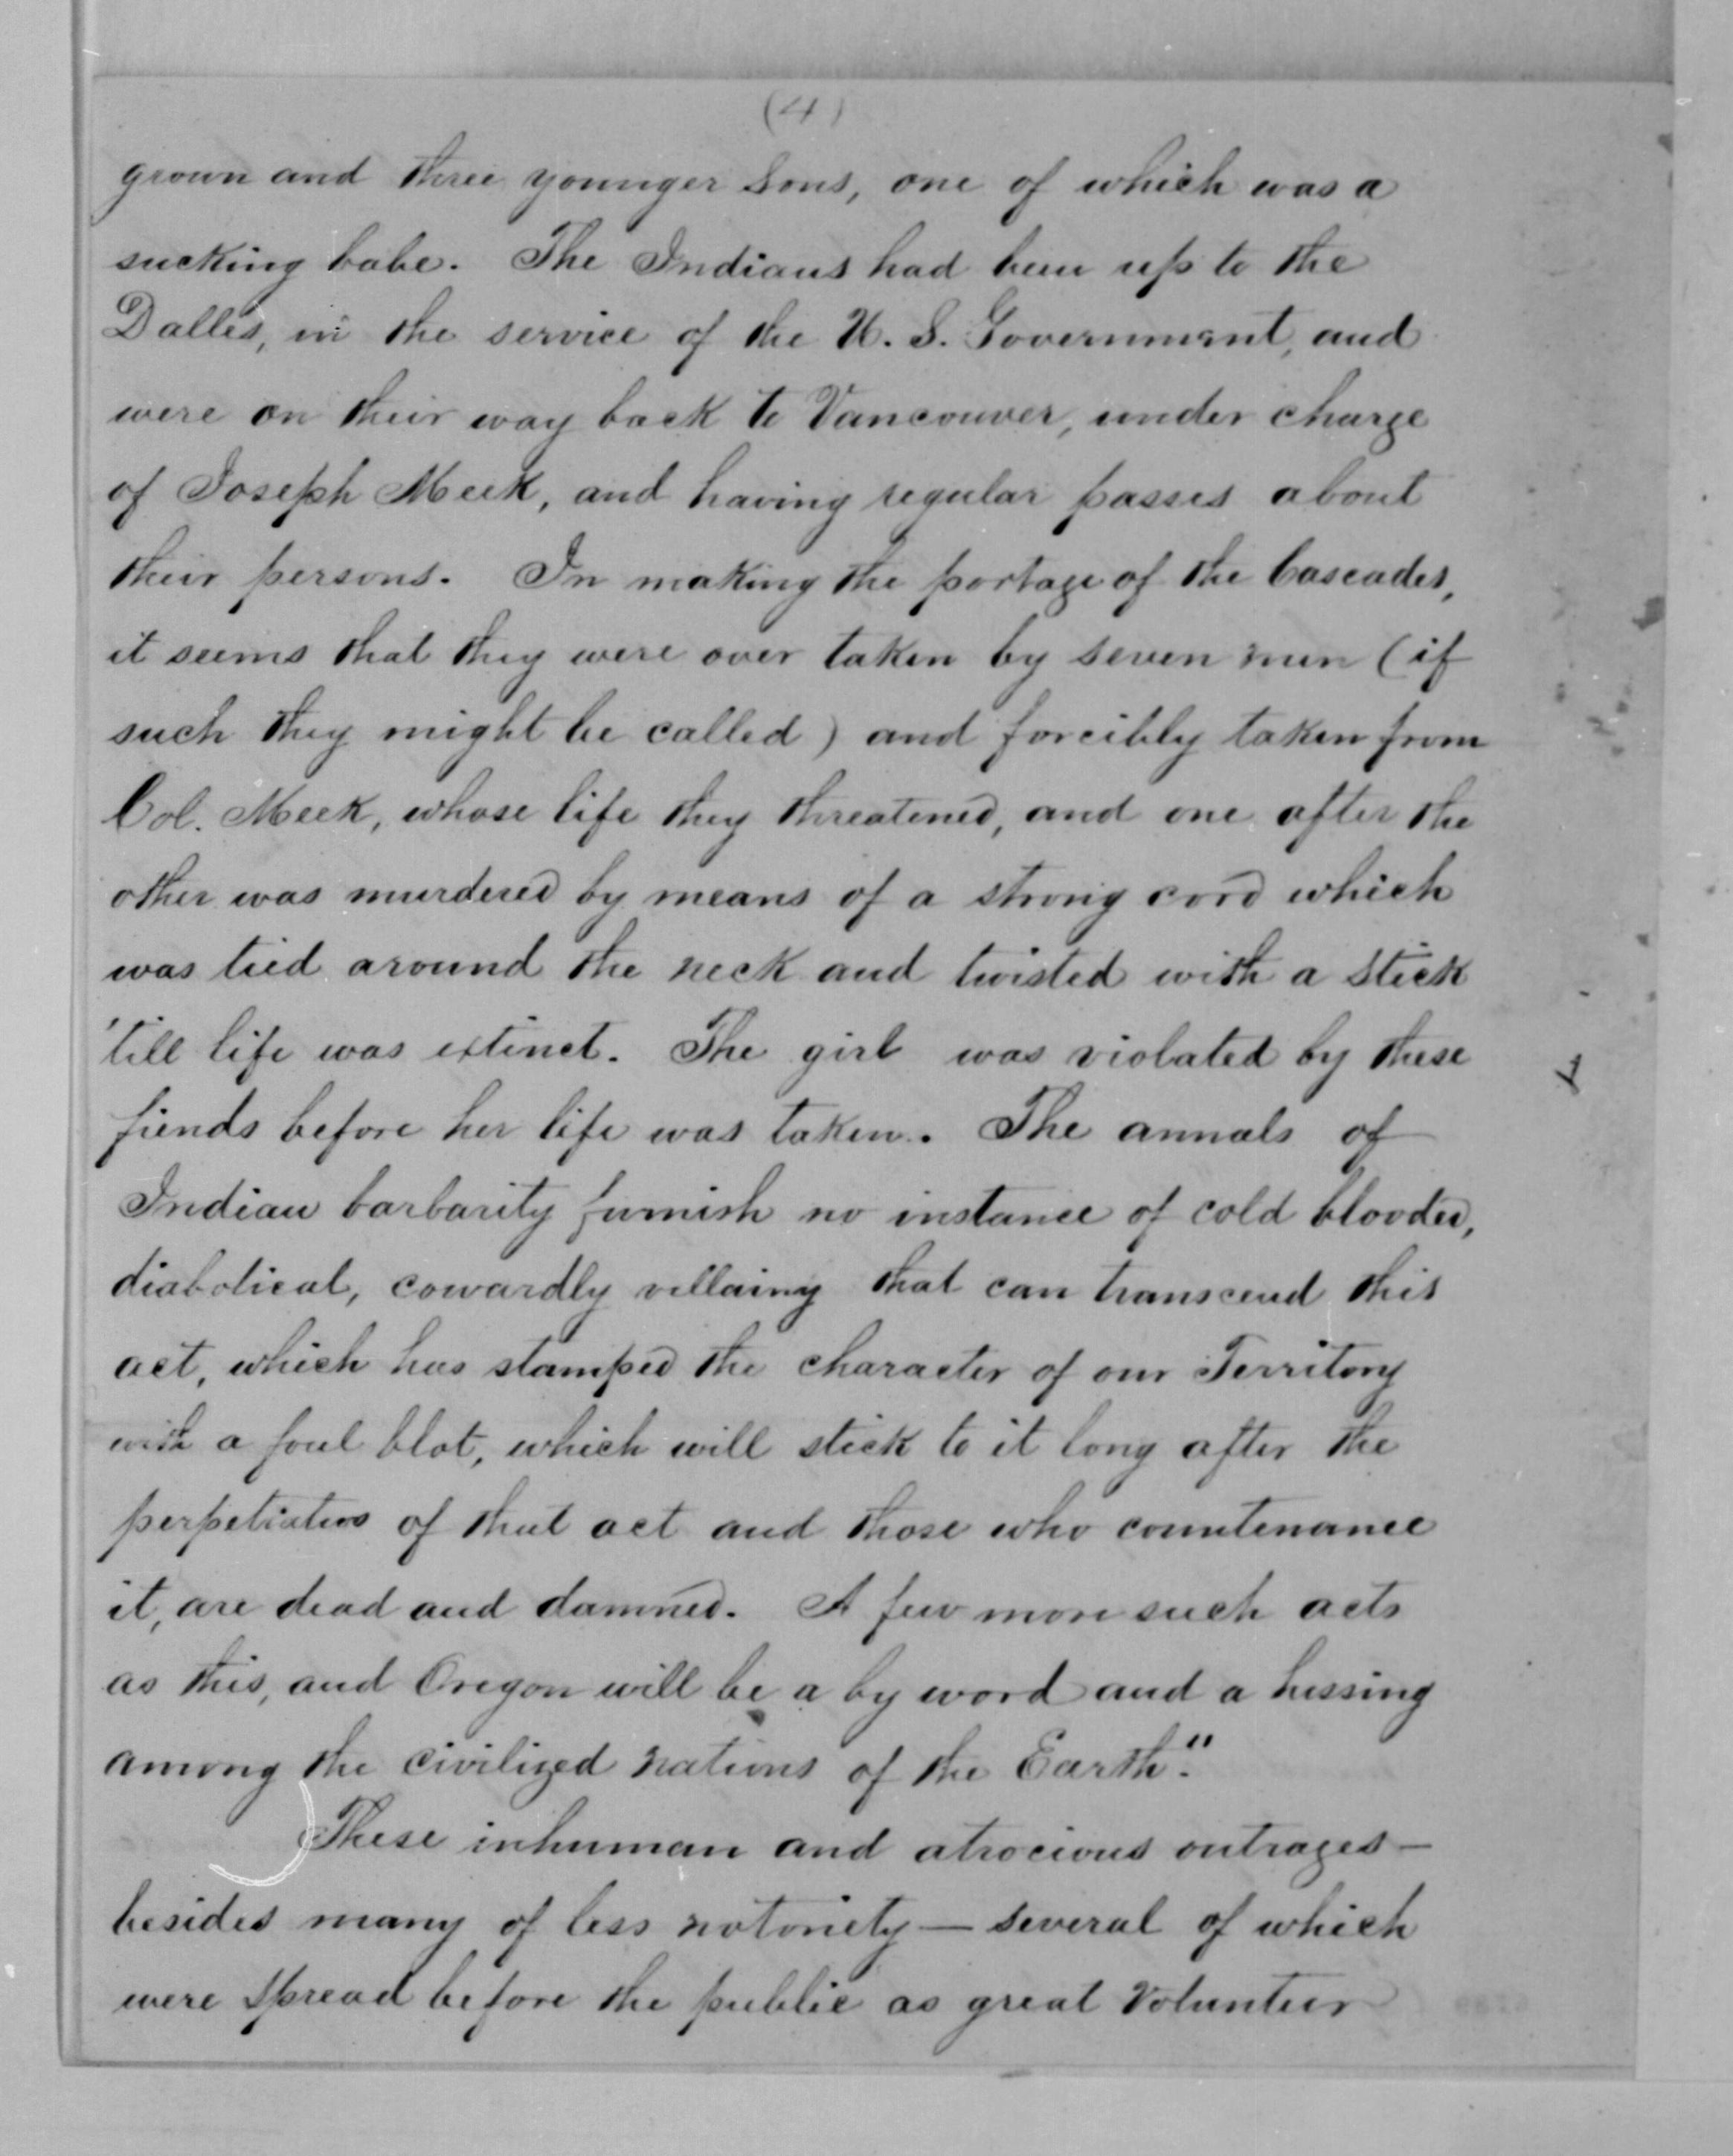 (4)
grown and three younger sons, one of which was a
sucking babe. The Indians had been up to the
Dalles, in the service of the U. S. Government, and
were on their way back to Vancouver, under charge
of Joseph Meek, and having regular passes about
their persons. In making the portage of the Cascades,
it seems that they were over taken by seven men (if
such they might be called) and forcibly taken from
Col. Meek, whose life they threatened, and one after the
other was murdered by means of a strong cord which
was tied around the neck and twisted with a stick
'till life was extinct. The girl was violated by these
fiends before her life was taken. The annals of
Indian barbarity furnish no instance of cold blooded,
diabolical, cowardly villainy that can transcend this
act, which has stamped the character of our Territory
with a foul blot, which will stick to it long after the
perpetrators of that act and those who countenance
it, are dead and damned. A few more such acts
as this, and Oregon will be a by word and a hissing
among the civilized nations of the Earth."
These inhuman and atrocious outrages—
besides many of less notoriety — several of which
were spread before the public as great Volunteer